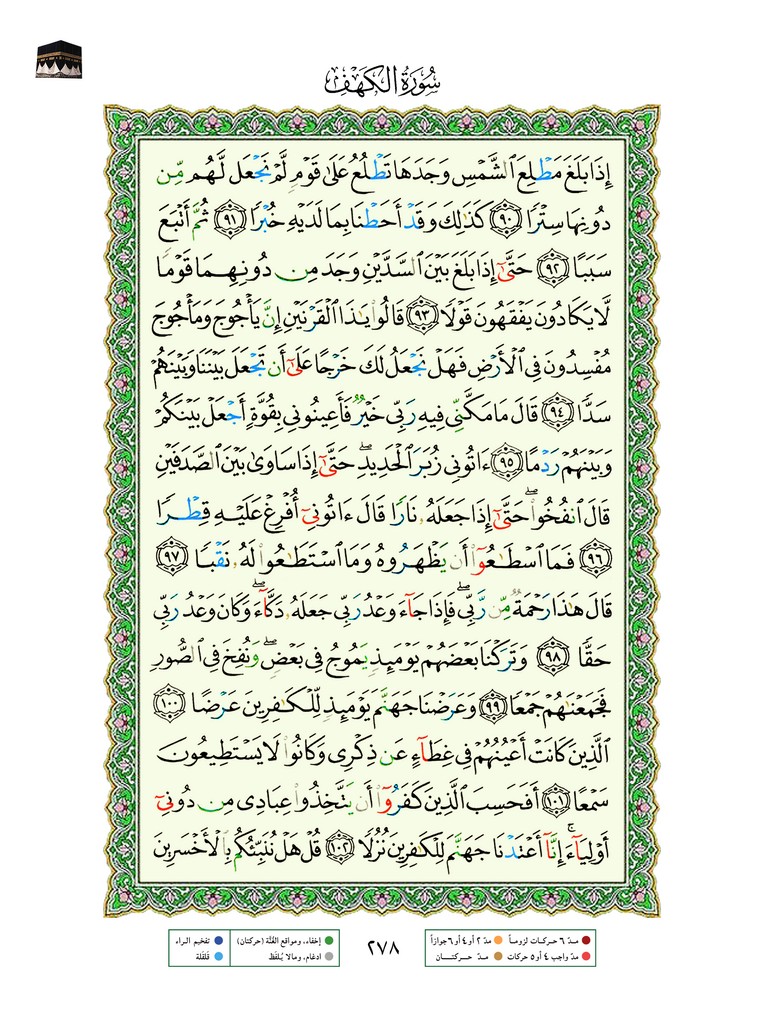 سُورَةُ الكَهْفِ
إِذَا بَلَغَ مَطْلِعَ ٱلشَّمْسِ وَجَدَهَا تَطْلُعُ عَلَىٰ قَوْمٍ لَّمْ نَجْعَل لَّهُم مِّن
دُونِهَا سِتْرًا ٩٠ كَذَٰلِكَ وَقَدْ أَحَطْنَا بِمَا لَدَيْهِ خُبْرًا ٩١ ثُمَّ أَتْبَعَ
سَبَبًا ٩٢ حَتَّىٰٓ إِذَا بَلَغَ بَيْنَ ٱلسَّدَّيْنِ وَجَدَ مِن دُونِهِمَا قَوْمًا
لَّا يَكَادُونَ يَفْقَهُونَ قَوْلًا ٩٣ قَالُوا۟ يَٰذَا ٱلْقَرْنَيْنِ إِنَّ يَأْجُوجَ وَمَأْجُوجَ
مُفْسِدُونَ فِى ٱلْأَرْضِ فَهَلْ نَجْعَلُ لَكَ خَرْجًا عَلَىٰٓ أَن تَجْعَلَ بَيْنَنَا وَبَيْنَهُمْ
سَدًّا ٩٤ قَالَ مَا مَكَّنِّى فِيهِ رَبِّى خَيْرٌ فَأَعِينُونِى بِقُوَّةٍ أَجْعَلْ بَيْنَكُمْ
وَبَيْنَهُمْ رَدْمًا ٩٥ ءَاتُونِى زُبَرَ ٱلْحَدِيدِ ۖ حَتَّىٰٓ إِذَا سَاوَىٰ بَيْنَ ٱلصَّدَفَيْنِ
قَالَ ٱنفُخُوا۟ ۖ حَتَّىٰٓ إِذَا جَعَلَهُۥ نَارًا قَالَ ءَاتُونِىٓ أُفْرِغْ عَلَيْهِ قِطْرًا
٩٦ فَمَا ٱسْطَٰعُوٓا۟ أَن يَظْهَرُوهُ وَمَا ٱسْتَطَٰعُوا۟ لَهُۥ نَقْبًا ٩٧
قَالَ هَٰذَا رَحْمَةٌ مِّن رَّبِّى ۖ فَإِذَا جَآءَ وَعْدُ رَبِّى جَعَلَهُۥ دَكَّآءَ ۖ وَكَانَ وَعْدُ رَبِّى
حَقًّا ٩٨ وَتَرَكْنَا بَعْضَهُمْ يَوْمَئِذٍ يَمُوجُ فِى بَعْضٍ ۖ وَنُفِخَ فِى ٱلصُّورِ
فَجَمَعْنَٰهُمْ جَمْعًا ٩٩ وَعَرَضْنَا جَهَنَّمَ يَوْمَئِذٍ لِّلْكَٰفِرِينَ عَرْضًا ١٠٠
ٱلَّذِينَ كَانَتْ أَعْيُنُهُمْ فِى غِطَآءٍ عَن ذِكْرِى وَكَانُوا۟ لَا يَسْتَطِيعُونَ
سَمْعًا ١٠١ أَفَحَسِبَ ٱلَّذِينَ كَفَرُوٓا۟ أَن يَتَّخِذُوا۟ عِبَادِى مِن دُونِىٓ
أَوْلِيَآءَ ۚ إِنَّآ أَعْتَدْنَا جَهَنَّمَ لِلْكَٰفِرِينَ نُزُلًا ١٠٢ قُلْ هَلْ نُنَبِّئُكُم بِٱلْأَخْسَرِينَ
مدّ ٦ حركات لزوماً مدّ ٢ أو ٤ أو ٦ جوازاً
مدّ واجب ٤ أو ٥ حركات مدّ حركتان
٢٧٨
إخفاء، ومواقع الغُنَّة (حركتان) تفخيم الراء
ادغام، ومالا يُلفَظ قلقلة